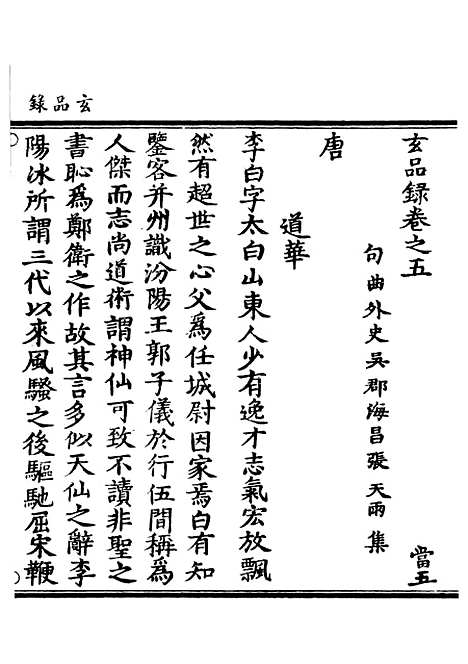 玄品録
玄品録卷之五
當五
句曲外史吳郡海昌張天雨集
唐
道華
李白字太白山東人少有逸才志氣宏放飄
然有超世之心父爲任城尉因家焉白有知
鑒客并州識汾陽王郭子儀於行伍間稱爲
人傑而志尚道術謂神仙可致不讀非聖之
書恥爲鄭衛之作故其言多似天仙之辭李
陽冰所謂三代以來風騷之後驅馳屈宋鞭